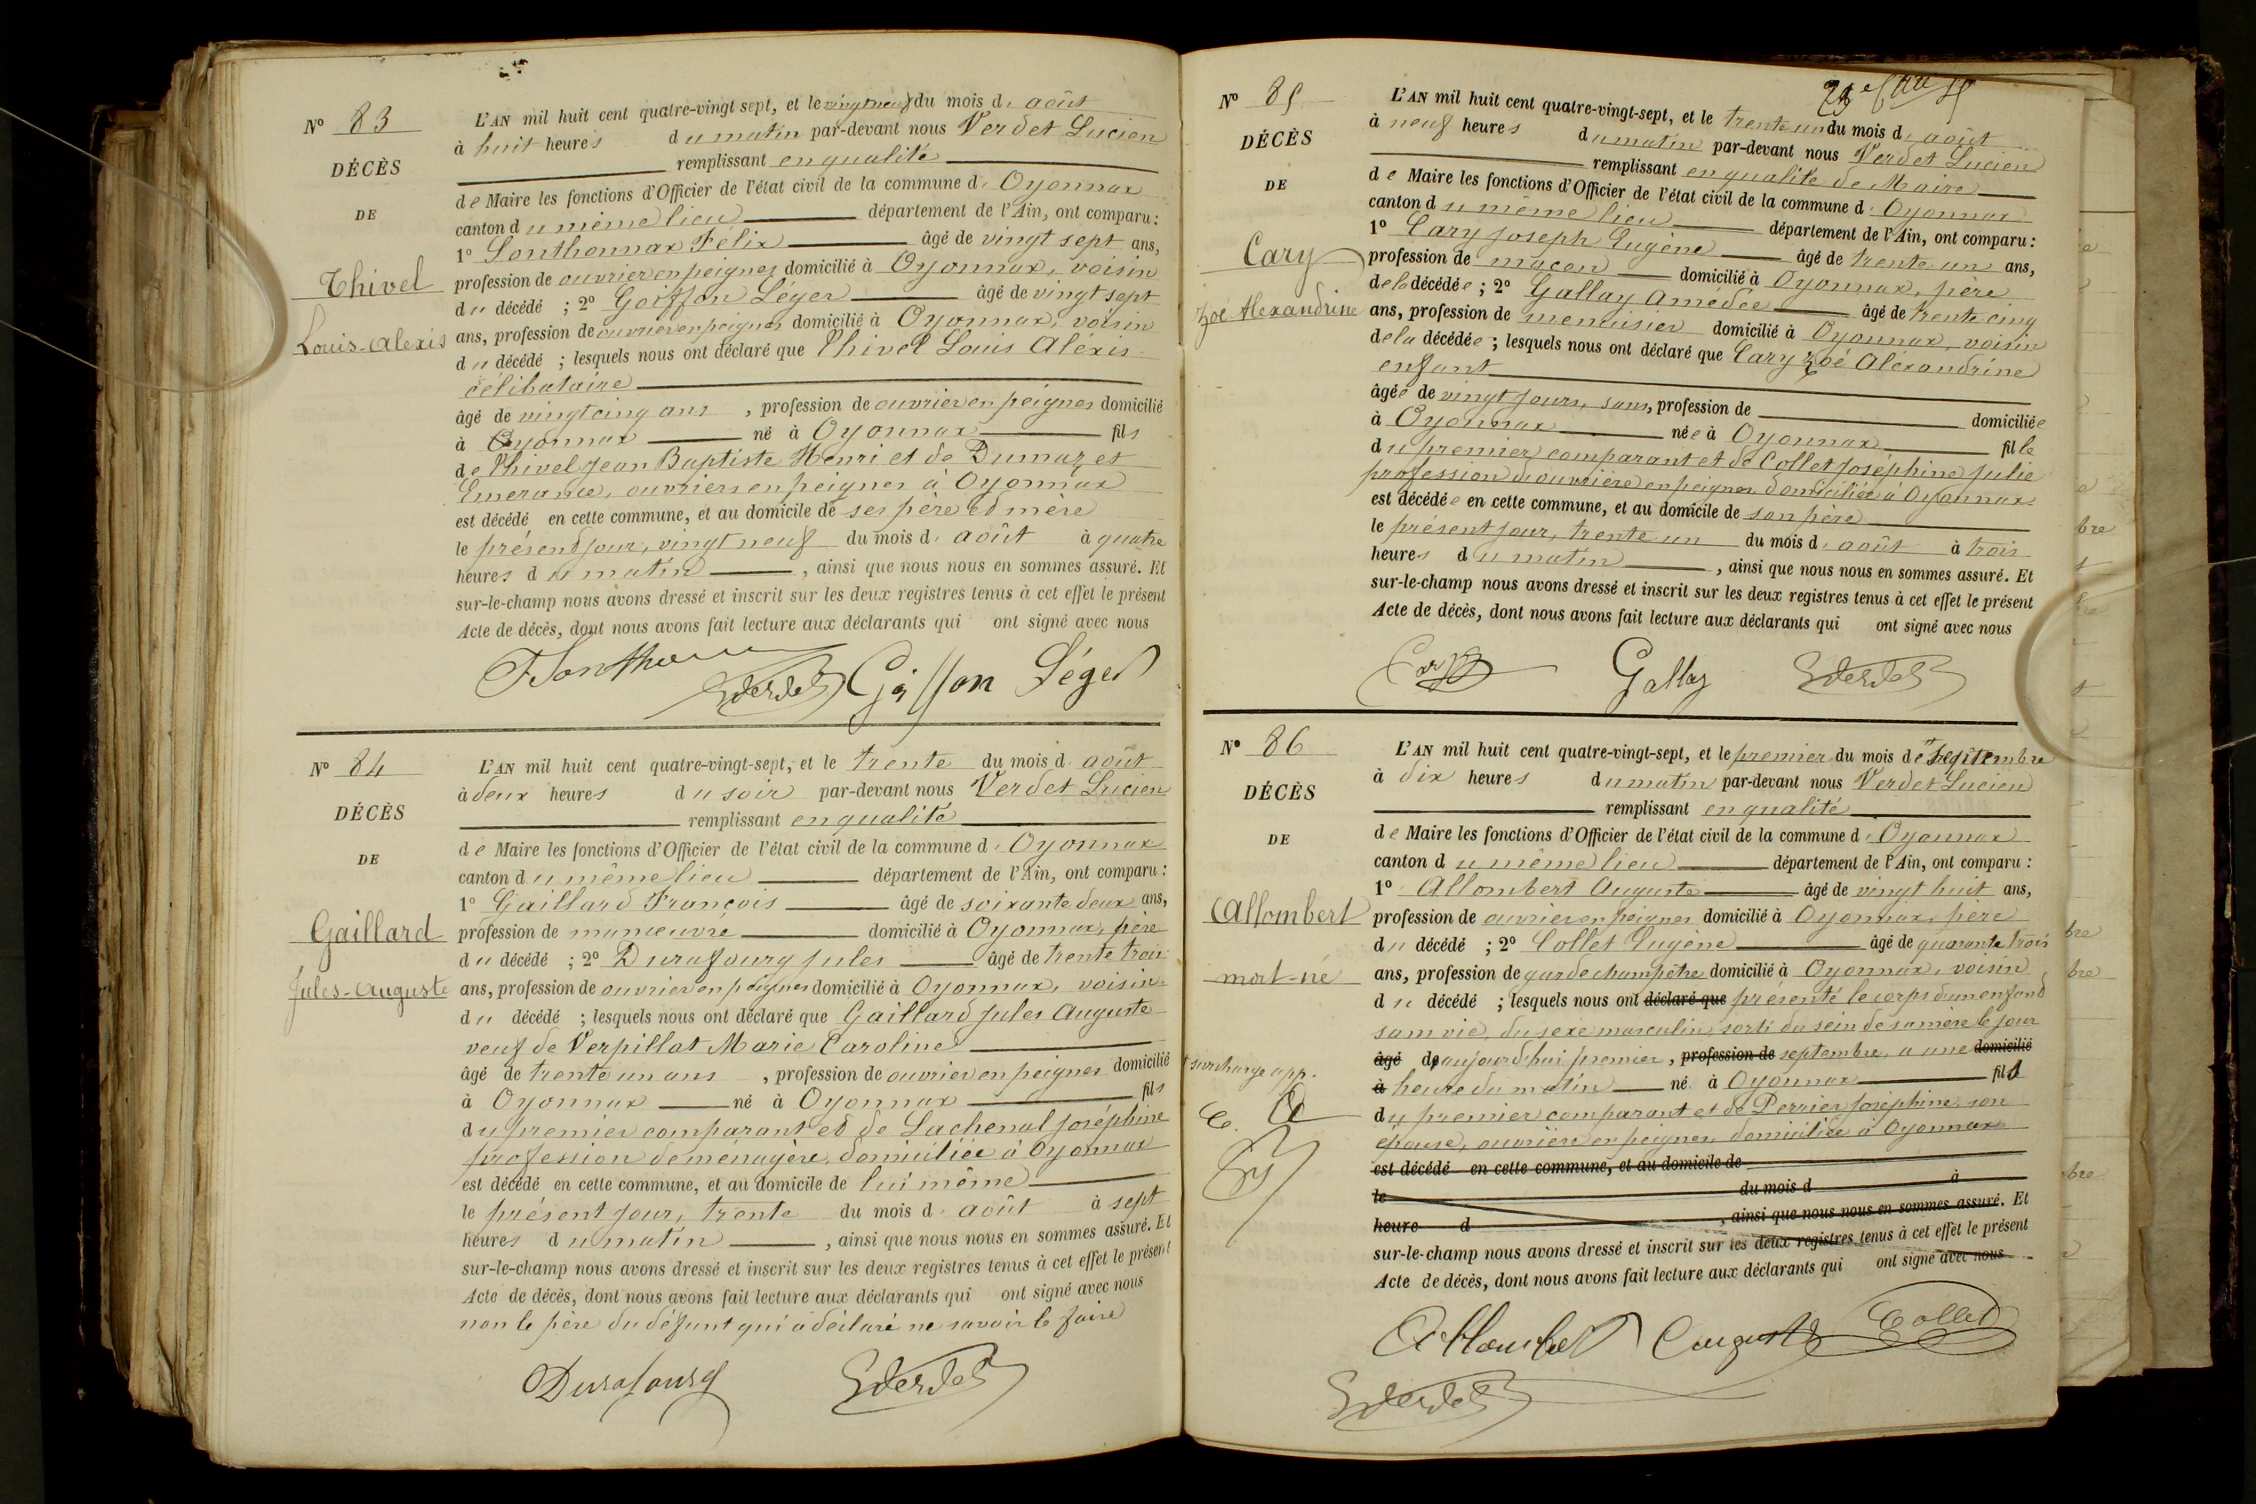 N° 83
DÉCÈS
DE
Thivel
Louis-Alexis
L'AN mil huit cent quatre-vingt sept, et le vingt neuf du mois d' août
à huit heures du matin par-devant nous Verdet Lucien
remplissant en qualité
de Maire les fonctions d'Officier de l'état civil de la commune d' Oyonnax
canton du même lieu département de l'Ain, ont comparu :
1° Sonthonnax Félix âgé de vingt sept ans,
profession de ouvrier en peignes domicilié à Oyonnax, voisin
du décédé ; 2° Goiffon Léger âgé de vingt sept
ans, profession de ouvrier en peignes domicilié à Oyonnax, voisin
du décédé ; lesquels nous ont déclaré que Thivel Louis Aléxis
célibataire
âgé de vingt cinq ans , profession de ouvrier en peignes domicilié
à Oyonnax né à Oyonnax fils
de Thivel Jean Baptiste Henri et de Dumaz et
Emerance, ouvriers en peignes à Oyonnax
est décédé en cette commune, et au domicile de ses père et mère
le présent jour, vingt neuf du mois d' août à quatre
heures du matin , ainsi que nous nous en sommes assuré. Et
sur-le-champ nous avons dressé et inscrit sur les deux registres tenus à cet effet le présent
Acte de décès, dont nous avons fait lecture aux déclarants qui ont signé avec nous
FSonthonnax Verdet Goiffon Léger
N° 84
DÉCÈS
DE
Gaillard
Jules-Auguste
L'AN mil huit cent quatre-vingt-sept, et le trente du mois d' août
à deux heures du soir par-devant nous Verdet Lucien
remplissant en qualité
de Maire les fonctions d'Officier de l'état civil de la commune d' Oyonnax
canton du même lieu département de l'Ain, ont comparu :
1° Gaillard François âgé de soixante deux ans,
profession de manœuvre domicilié à Oyonnax, père
du décédé ; 2° Durafourg Jules âgé de trente trois
ans, profession de ouvrier en peignes domicilié à Oyonnax, voisin
du décédé ; lesquels nous ont déclaré que Gaillard Jules Auguste
veuf de Verpillat Marie Caroline
âgé de trente un ans , profession de ouvrier en peignes domicilié
à Oyonnax né à Oyonnax fils
du premier comparant et de Lachenal Joséphine
profession de ménagère, domiciliée à Oyonnax
est décédé en cette commune, et au domicile de lui même
le présent jour, trente du mois d' août à sept
heures du matin , ainsi que nous nous en sommes assuré. Et
sur-le-champ nous avons dressé et inscrit sur les deux registres tenus à cet effet le présent
Acte de décès, dont nous avons fait lecture aux déclarants qui ont signé avec nous
non le père du défunt qui a déclaré ne savoir le faire
Durafourg Verdet
N° 85
DÉCÈS
DE
Cary
Zoé Alexandrine
L'AN mil huit cent quatre-vingt-sept, et le trente un du mois d' août
à neuf heures du matin par-devant nous Verdet Lucien
remplissant en qualité de Maire
de Maire les fonctions d'Officier de l'état civil de la commune d' Oyonnax
canton du même lieu département de l'Ain, ont comparu :
1° Cary Joseph Eugène âgé de trente un ans,
profession de maçon domicilié à Oyonnax, père
de la décédée ; 2° Gallay Amédée âgé de trente cinq
ans, profession de menuisier domicilié à Oyonnax, voisin
de la décédée ; lesquels nous ont déclaré que Cary Zoé Aléxandrine
enfant
âgée de vingt jours, sans, profession de domiciliée
à Oyonnax née à Oyonnax fille
du premier comparant et de Collet Joséphine Julie
profession d'ouvrière en peignes, domiciliée à Oyonnax
est décédée en cette commune, et au domicile de son père
le présent jour, trente un du mois d' août à trois
heures du matin , ainsi que nous nous en sommes assuré. Et
sur-le-champ nous avons dressé et inscrit sur les deux registres tenus à cet effet le présent
Acte de décès, dont nous avons fait lecture aux déclarants qui ont signé avec nous
Cary Gallay Verdet
N° 86
DÉCÈS
DE
Allombert
mort-né
surcharge app.
L'AN mil huit cent quatre-vingt-sept, et le premier du mois de septembre
à dix heures du matin par-devant nous Verdet Lucien
remplissant en qualité
de Maire les fonctions d'Officier de l'état civil de la commune d' Oyonnax
canton du même lieu département de l'Ain, ont comparu :
1° Allombert Auguste âgé de vingt huit ans,
profession de ouvrier en peignes domicilié à Oyonnax, père
du décédé ; 2° Collet Eugène âgé de quarante trois
ans, profession de garde champêtre domicilié à Oyonnax, voisin
du décédé ; lesquels nous ont déclaré que présenté le corps d'un enfant
sans vie, du sexe masculin, sorti du sein de sa mère le jour
âgé d'aujourd'hui premier, profession de septembre, a une domicilié
à heure du matin né à Oyonnax fils
du premier comparant et de Perrier Joséphine, son
épouse, ouvrière en peignes, domiciliée à Oyonnax
est décédé en cette commune, et au domicile de
le du mois d à
heure d , ainsi que nous nous en sommes assuré. Et
sur-le-champ nous avons dressé et inscrit sur les deux registres tenus à cet effet le présent
Acte de décès, dont nous avons fait lecture aux déclarants qui ont signé avec nous
Allombert Auguste Collet
Verdet